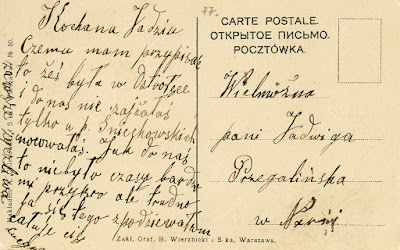 77.
CARTE POSTALE.
ОТКРЫТОЕ ПИСЬМО.
POCZTÓWKA.
Kochana Jadzia
Czemu mam przypisać
to żeś była w
i do nas nie zajżałaś
tylko u p. Śniechowskich
nocowałaś. Jak do nas
to niebyło czasu bardzo
mi przykro ale trudno
ja się tego spodziewałam
całuje cię
Wielmożna
pani Jadwiga
Przegalińska
w
Zakł. Graf. B. Wierzbicki i S-ka, Warszawa.
№ 50.